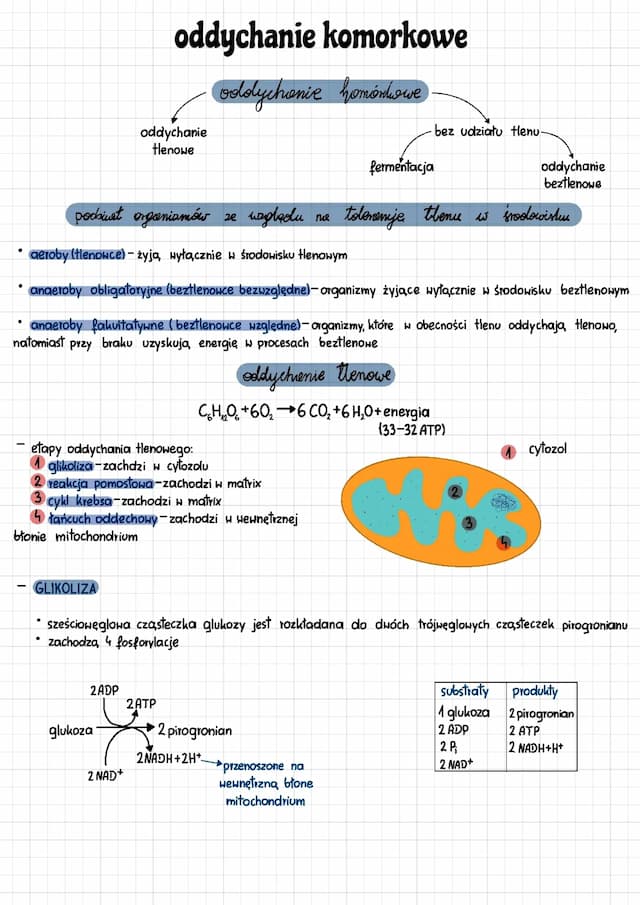 oddychanie komorkowe
oddychanie komórkowe
oddychanie
tlenowe
bez udziału tlenu
fermentacja
oddychanie
beztlenowe
podział organizmów ze względu na tolerancję tlenu w środowisku
• aeroby (tlenowce) – żyją wyłącznie w środowisku tlenowym
• anaeroby obligatoryjne (beztlenowce bezwzględne) – organizmy żyjące wyłącznie w środowisku beztlenowym
• anaeroby fakultatywne (beztlenowce względne) – organizmy, które w obecności tlenu oddychają tlenowo,
natomiast przy braku uzyskują energię w procesach beztlenowe
oddychanie tlenowe
C₆H₁₂O₆ + 6O₂ → 6 CO₂ + 6 H₂O + energia
(33-32 ATP)
– etapy oddychania tlenowego:
1 glikoliza – zachdzi w cytozolu
2 reakcja pomostowa – zachodzi w matrix
3 cykl krebsa – zachodzi w matrix
4 łańcuch oddechowy – zachodzi w wewnętrznej
błonie mitochondrium
1 cytozol
2
3
4
– GLIKOLIZA
• sześciowęglowa cząsteczka glukozy jest rozkładana do dwóch trójwęglowych cząsteczek pirogronianu
• zachodzą 4 fosforylacje
2 ADP
2 ATP
glukoza
2 pirogronian
2 NADH + 2H⁺
2 NAD⁺
przenoszone na
wewnętrzną błonę
mitochondrium
substraty produkty
1 glukoza 2 pirogronian
2 ADP 2 ATP
2 Pᵢ 2 NADH+H⁺
2 NAD⁺